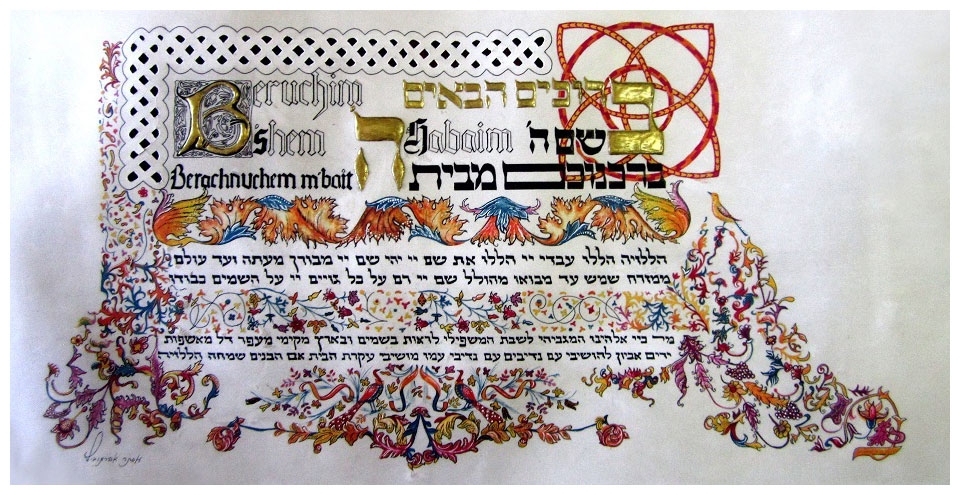 Beruchim ברוכים הבאים
Bshem ה Habaim בשם ה'
Berachnuchem m'bait ברכנוכם מבית
הללויה הללו עבדי יי הללו את שם יי יהי שם יי מבורך מעתה ועד עולם
ממזרח שמש עד מבואו מהולל שם יי רם על כל גויים יי על השמים כבודו
מי כיי אלהינו המגביהי לשבת המשפילי לראות בשמים ובארץ מקימי מעפר דל מאשפות
ירים אביון להושיבי עם נדיבים עם נדיבי עמו מושיבי עקרת הבית אם הבנים שמחה הללויה